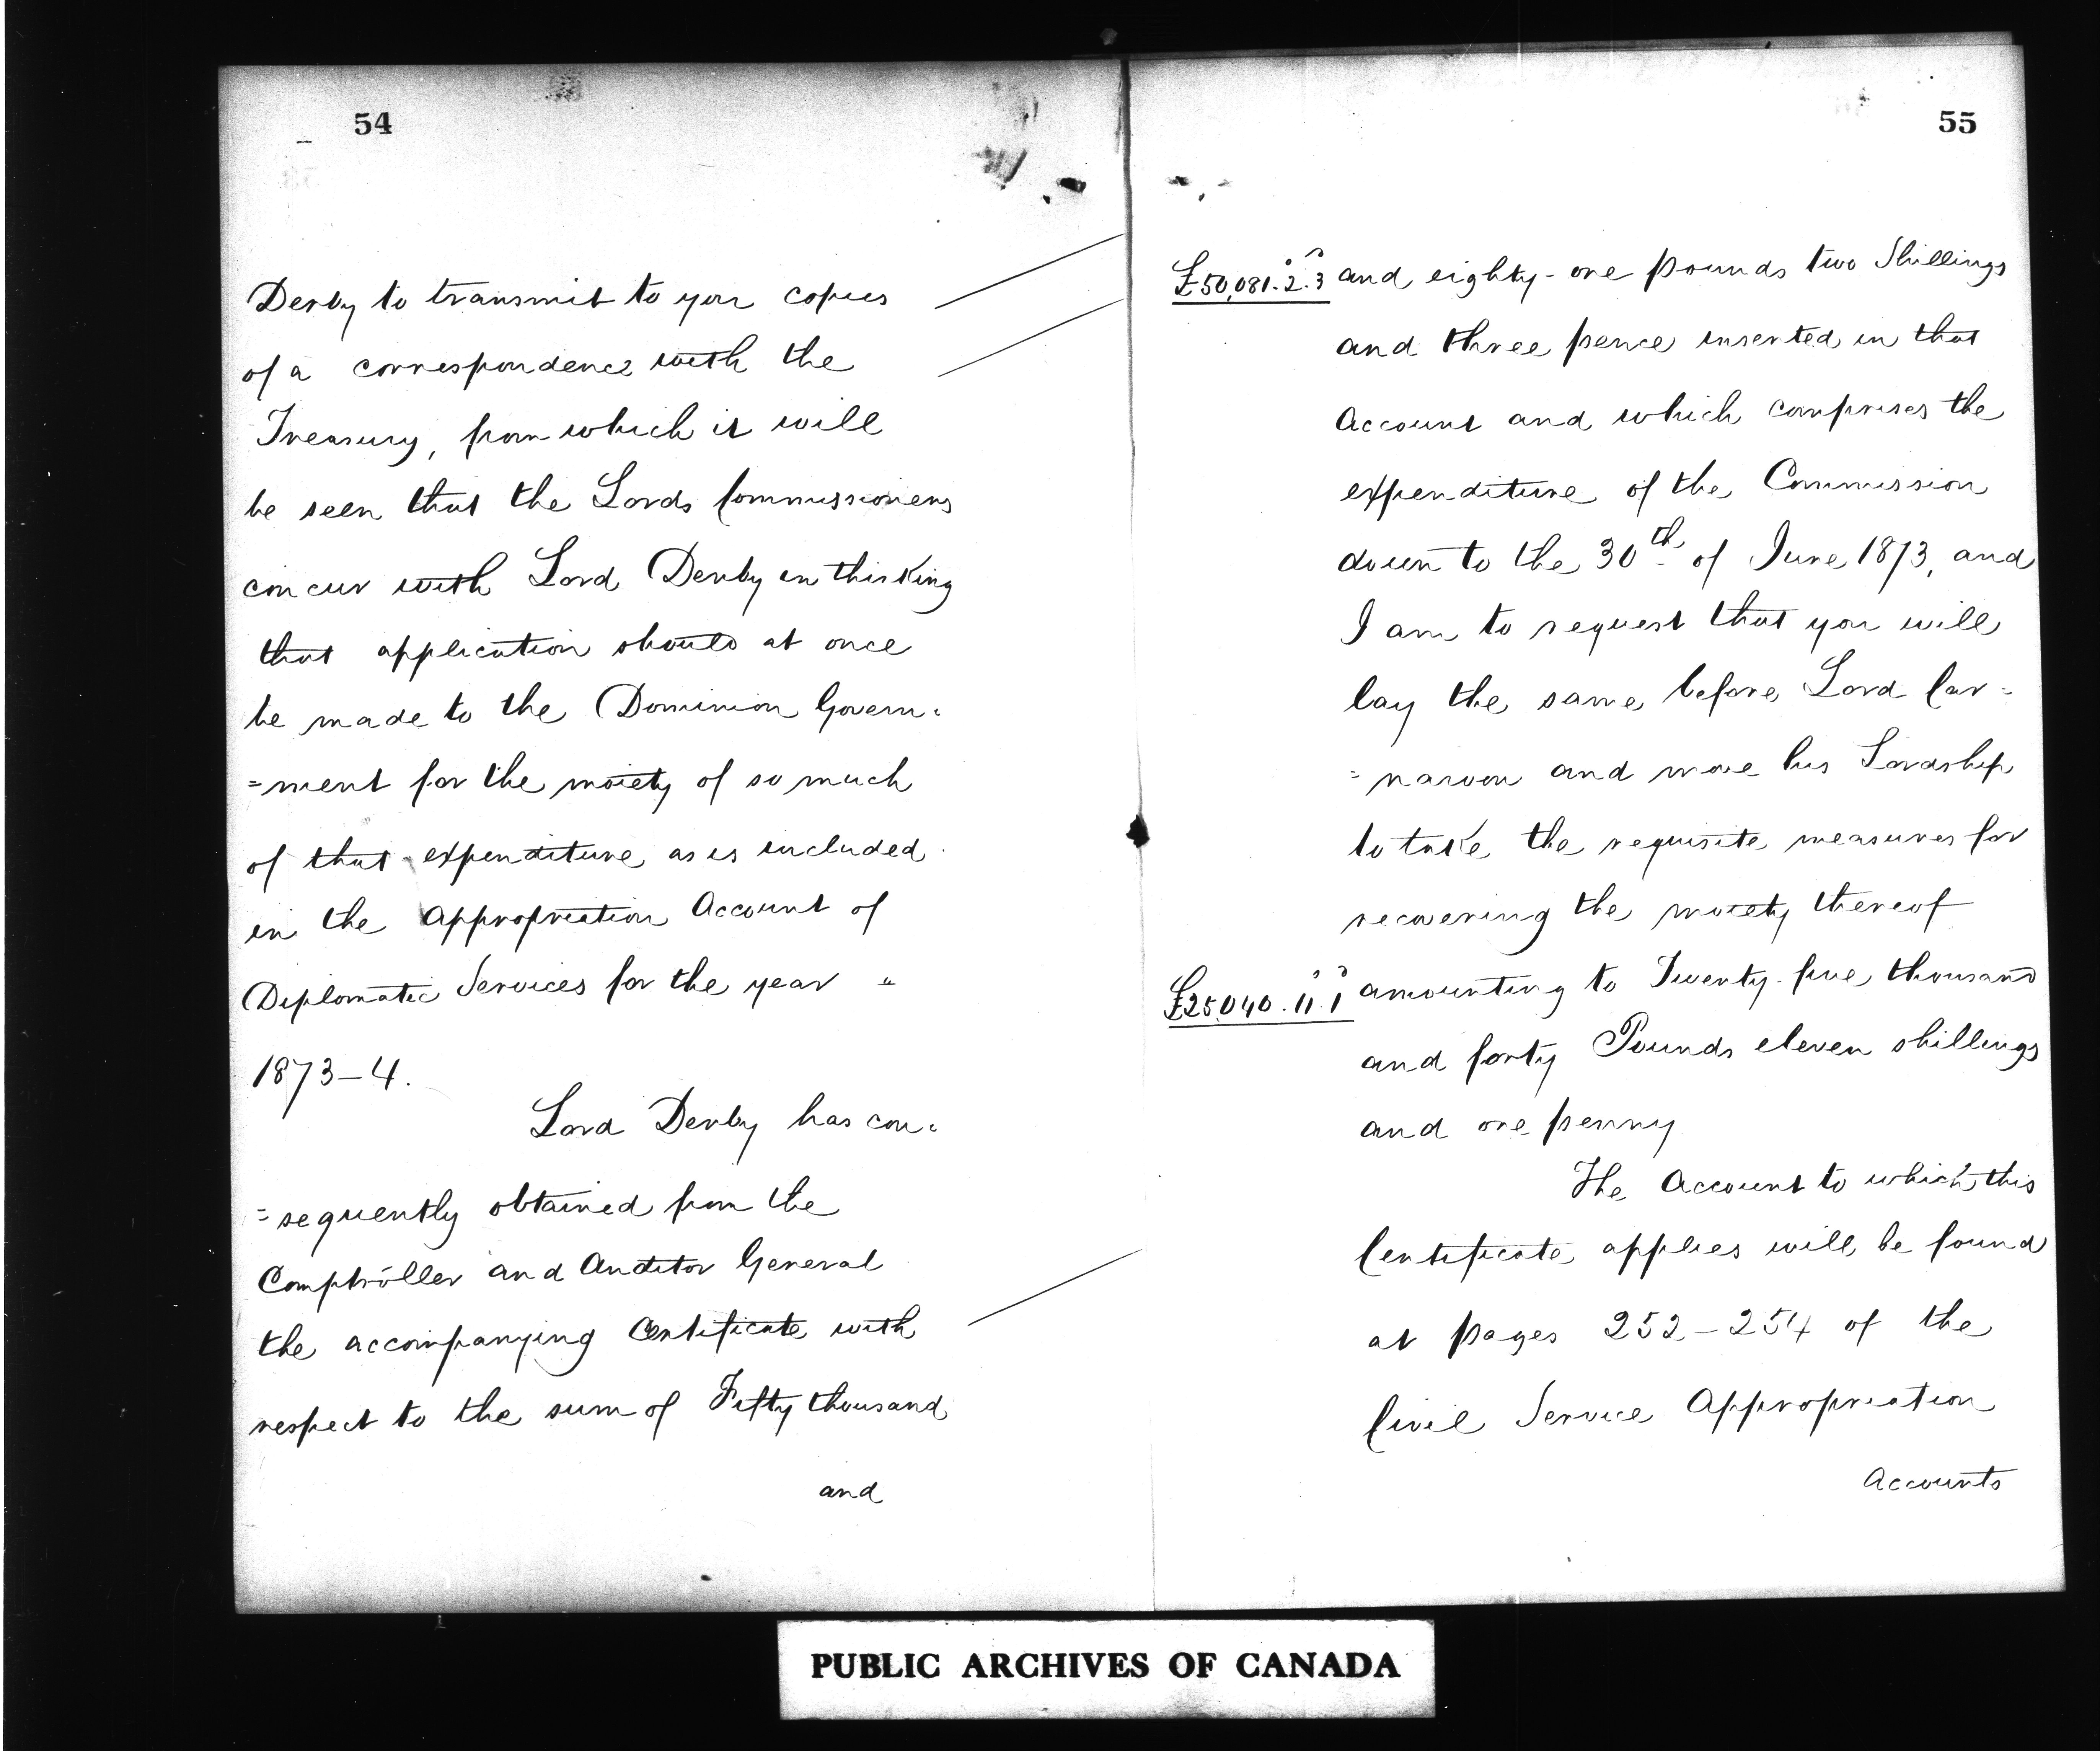 54
Derby to transmit to you copies
of a correspondence with the
Treasury, from which it will
be seen that the Lords Commissioners
concur with Lord Derby in thinking
that application should at once
be made to the Dominion Govern-
=ment for the moiety of so much
of that expenditure as is included
in the Appropriation Account of
Diplomatic Services for the year "
1873-4.
Lord Derby has con-
=sequently obtained from the
Comptroller and Auditor General
the accompanying Certificate with
respect to the sum of Fifty thousand
and
55
£50,081.2.3 and eighty-one pounds two Shillings
and three pence inserted in that
Account and which comprises the
expenditure of the Commission
down to the 30th of June 1873, and
I am to request that you will
lay the same before Lord Car=
=narvon and move his Lordship
to take the requisite measures for
recovering the moiety thereof
£25,040.11.1 amounting to Twenty-five thousand
and forty Pounds eleven shillings
and one penny
The Account to which this
Certificate applies will be found
at pages 252-254 of the
Civil Service Appropriation
Accounts
PUBLIC ARCHIVES OF CANADA